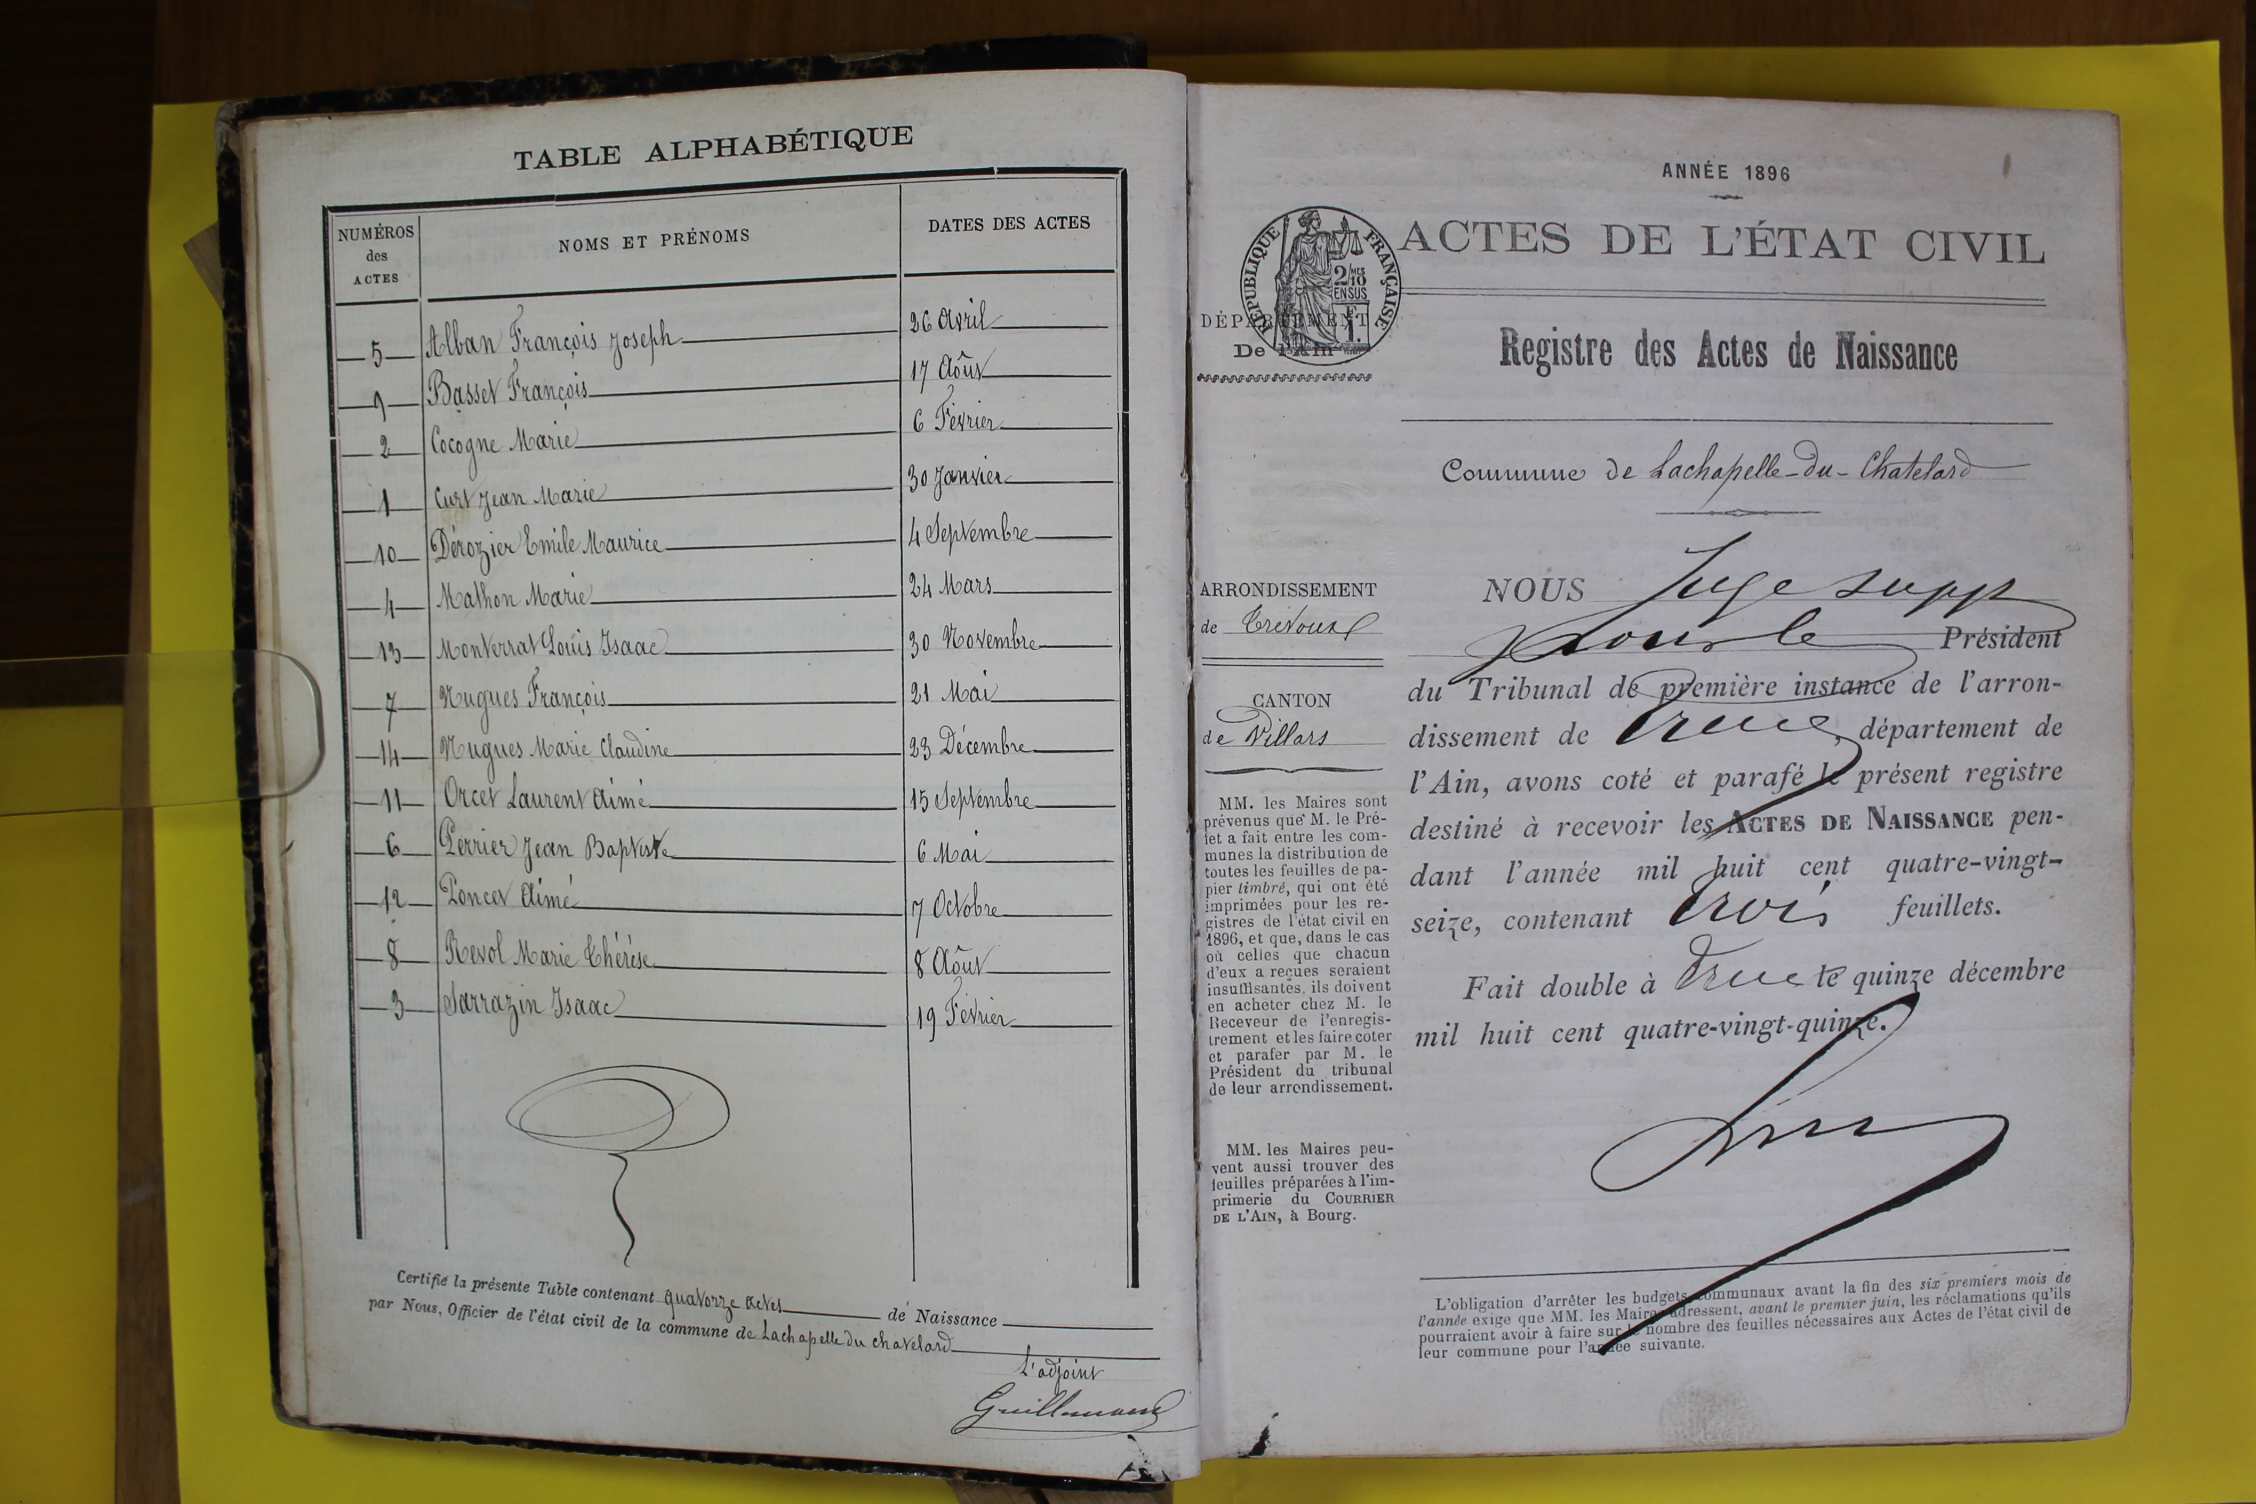 TABLE ALPHABÉTIQUE
NUMÉROS des ACTES NOMS ET PRÉNOMS DATES DES ACTES
5 Alban François Joseph 26 Avril
9 Basset François 17 Août
2 Cocogne Marie 6 Février
1 Curt Jean Marie 30 Janvier
10 Dérozier Emile Maurice 4 Septembre
4 Mathon Marie 24 Mars
13 Monterrat Louis Isaac 30 Novembre
7 Nugues François 21 Mai
14 Nugues Marie Claudine 23 Décembre
11 Orcet Laurent Aimé 15 Septembre
6 Perrier Jean Baptiste 6 Mai
12 Poncet Aimé 7 Octobre
8 Revol Marie Thérèse 8 Août
3 Sarrazin Isaac 19 Février
Certifié la présente Table contenant quatorze actes de Naissance
par Nous, Officier de l'état civil de la commune de Lachapelle du chatelard
L'adjoint
ANNÉE 1896
ACTES DE L'ÉTAT CIVIL
RÉPUBLIQUE FRANÇAISE
2/10
EN SUS
DÉPARTEMENT
De l'Ain
Registre des Actes de Naissance
Commune de Lachapelle-du-Chatelard
ARRONDISSEMENT
de Trévoux
CANTON
de Villars
MM. les Maires sont
prévenus que M. le Pré-
fet a fait entre les com-
munes la distribution de
toutes les feuilles de pa-
pier timbré, qui ont été
imprimées pour les re-
gistres de l'état civil en
1896, et que, dans le cas
où celles que chacun
d'eux a reçues seraient
insuffisantes, ils doivent
en acheter chez M. le
Receveur de l'enregis-
trement et les faire coter
et parafer par M. le
Président du tribunal
de leur arrondissement.
MM. les Maires peu-
vent aussi trouver des
feuilles préparées à l'im-
primerie du COURRIER
DE L'AIN, à Bourg.
NOUS Juge supp
pour le Président
du Tribunal de première instance de l'arron-
dissement de département de
l'Ain, avons coté et parafé le présent registre
destiné à recevoir les ACTES DE NAISSANCE pen-
dant l'année mil huit cent quatre-vingt-
seize, contenant trois feuillets.
Fait double à le quinze décembre
mil huit cent quatre-vingt-quinze.
L'obligation d'arrêter les budgets communaux avant la fin des six premiers mois de
l'année exige que MM. les Maires adressent, avant le premier juin, les réclamations qu'ils
pourraient avoir à faire sur le nombre des feuilles nécessaires aux Actes de l'état civil de
leur commune pour l'année suivante.